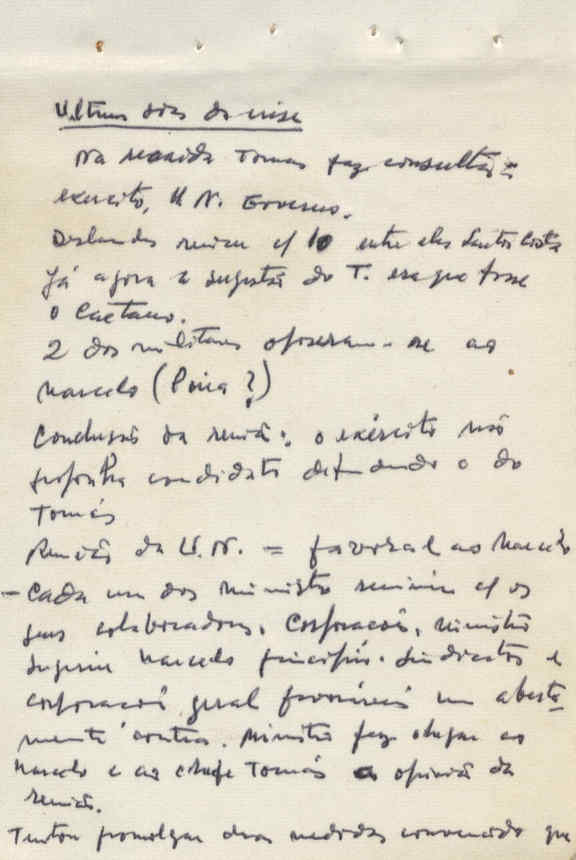 Ultimos dias da crise
Na reunida Tomas fez consultas =
exercito, U N. Governo.
Deslandes reuniu c/ 10 entre eles Santos Costa
Já agora a sugestão do T. era que fosse
o Caetano.
2 dos militares opuseram-se ao
Marcelo (Paiva?)
Conclusão da reunião: o exército não
propunha candidato defendendo o do
Tomás
Reunião da U.N. = favoravel ao Marcelo
- Cada um dos ministros reuniu c/ os
seus colaboradores. Corporações, ministro
sugeriu Marcelo principio. Sindicatos e
corporações geral favoráveis um aberta-
mente contra. Ministro fez chegar ao
Marcelo e ao chefe Tomás a opinião da
reunião.
Tentou promulgar duas medidas convencido que